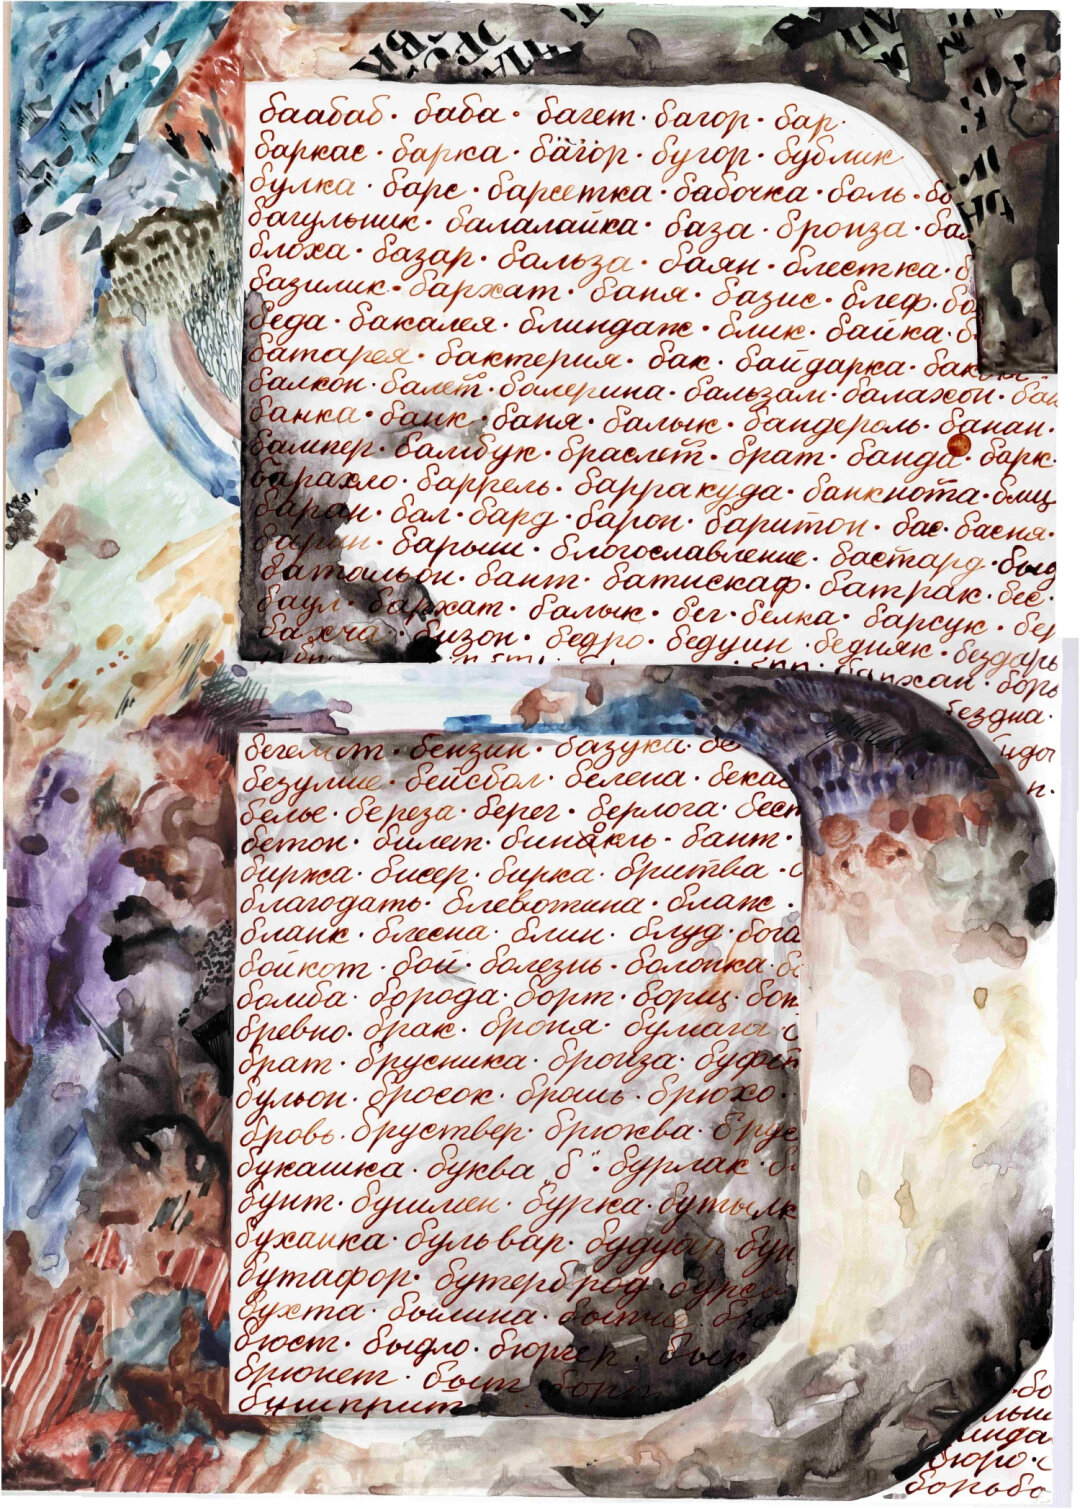 баобаб · баба · багет · багор · бар ·
баркас · барка · багор · бугор · бублик
булка · барс · барсетка · бабочка · боль ·
багульник · балалайка · база · бронза ·
блоха · базар · бальза · баян · блестка ·
базилик · бархат · баня · базис · блеф ·
беда · бакалея · блиндаж · блик · байка ·
батарея · бактерия · бак · байдарка ·
балкон · балет · балерина · бальзам · балахон ·
банка · банк · баня · балык · бандероль · банан ·
бампер · бамбук · браслет · брат · банда · барк
барахло · баррель · барракуда · банкнота · блиц
баран · бал · бард · барон · баритон · бас · басня ·
барыш · благославление · бастард ·
батальон · бант · батискаф · батрак · бес ·
баул · бархат · балык · бег · белка · барсук ·
бахча · бизон · бедро · бедуин · бедняк · бездарь
бездна ·
бегемот · бензин · базука ·
безумие · бейсбол · белена ·
белье · береза · берег · берлога ·
бетон · билет · бинокль · бант ·
биржа · бисер · бирка · бритва ·
благодать · блевотина · блаж ·
бланк · блесна · блин · блуд ·
бойкот · бой · болезнь · болонка ·
бомба · борода · борт · борщ ·
бревно · брак · броня · бумага
брат · брусника · бронза ·
бульон · бросок · брошь · брюхо ·
бровь · бруствер · брюква ·
букашка · буква „б“ · бурлак ·
бунт · бушмен · бурка ·
буханка · бульвар · будуар
бутафор · бутерброд ·
бухта · былина ·
бюст · быдло · бюргер · бык
брюнет · быт
бушприт
бюро ·